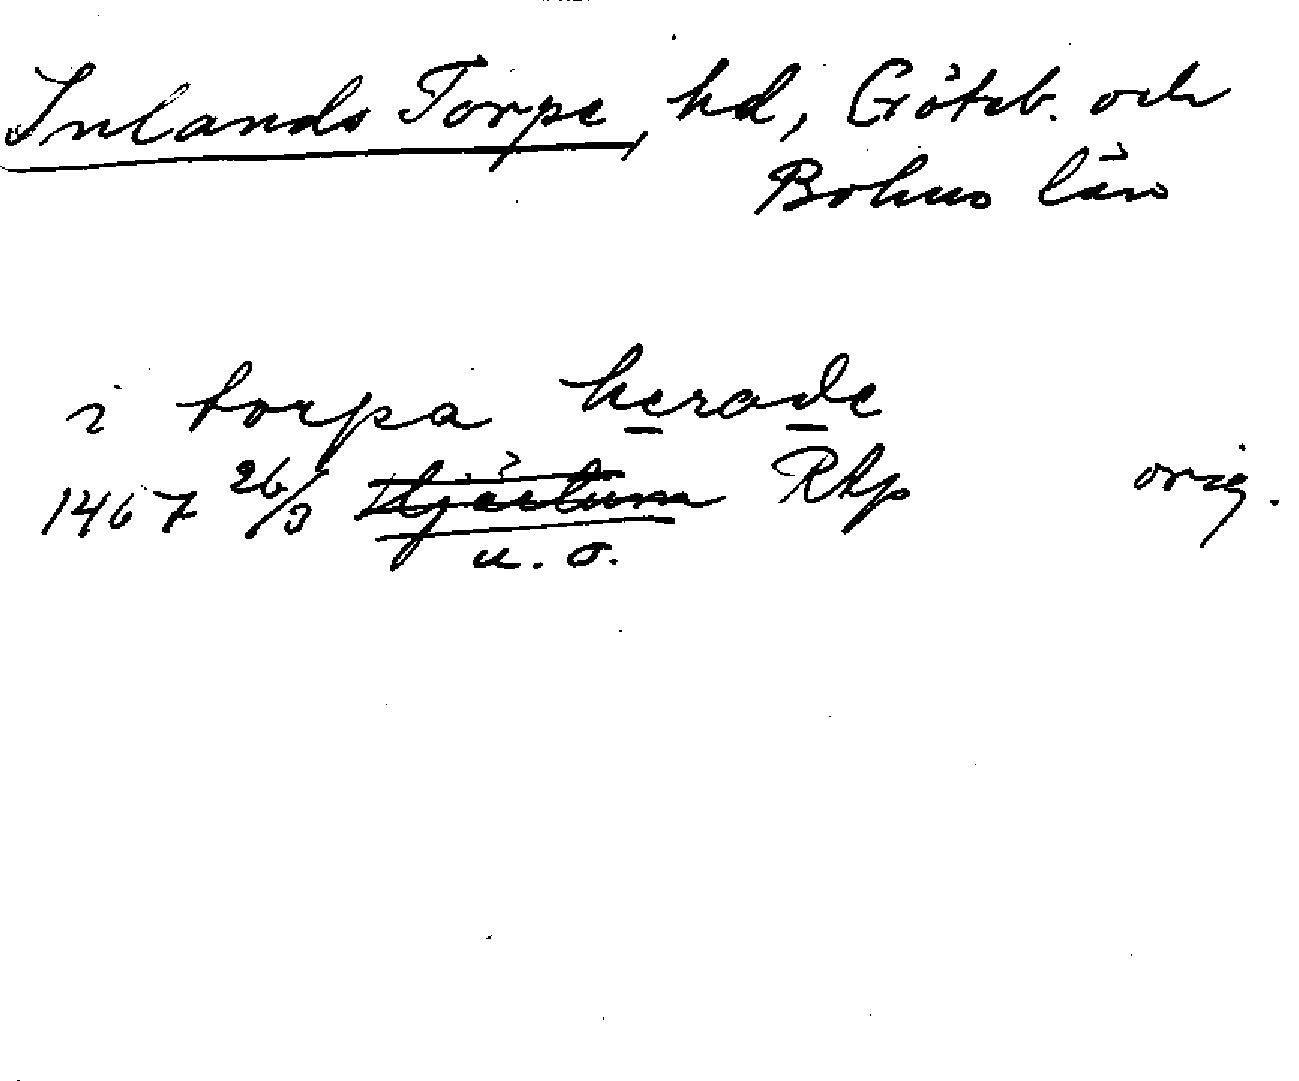 Inlands Torpe, hd, Göteb. och
Bohus län
i torpa herade
1467 26/3 Hjärtum Rkp orig.
u. o.